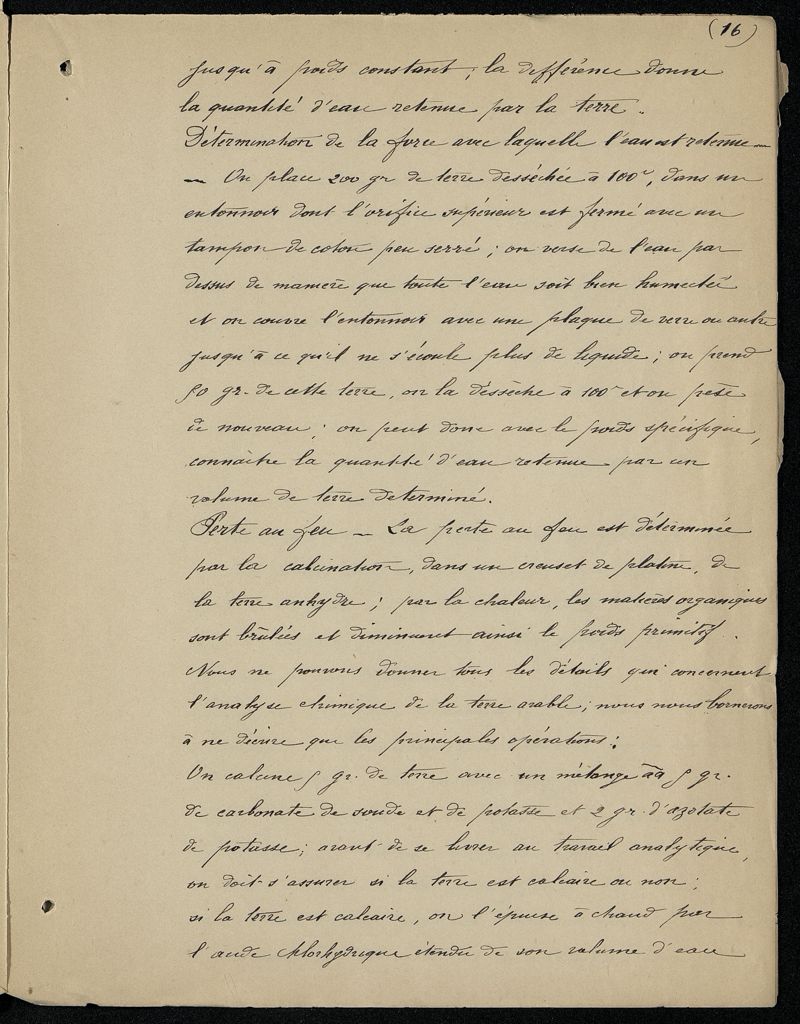 (16)
jusqu'à poids constant ; la différence donne
la quantité d'eau retenue par la terre.
Détermination de la force avec laquelle l'eau est retenue —
— On place 200 gr de terre desséchée à 100°, dans un
entonnoir dont l'orifice supérieur est fermé avec un
tampon de coton peu serré ; on verse de l'eau par
dessus de manière que toute l'eau soit bien humectée
et on couvre l'entonnoir avec une plaque de verre ou autre
jusqu'à ce qu'il ne s'écoule plus de liquide ; on prend
50 gr. de cette terre, on la déssèche à 100° et on pèse
de nouveau ; on peut donc avec le poids spécifique,
connaître la quantité d'eau retenue par un
volume de terre determiné.
Perte au feu — La perte au feu est déterminée
par la calcination, dans un creuset de platine, de
la terre anhydre ; par la chaleur, les matières organiques
sont brûlées et diminuent ainsi le poids primitif.
Nous ne pouvons donner tous les détails qui concernent
l'analyse chimique de la terre arable ; nous nous bornerons
à ne décrire que les principales opérations :
On calcine 5 gr. de terre avec un mélange āā 5 gr.
de carbonate de soude et de potasse et 2 gr. d'azotate
de potasse ; avant de se livrer au travail analytique,
on doit s'assurer si la terre est calcaire ou non ;
si la terre est calcaire, on l'épuise à chaud par
l'acide chlorhydrique étendu de son volume d'eau